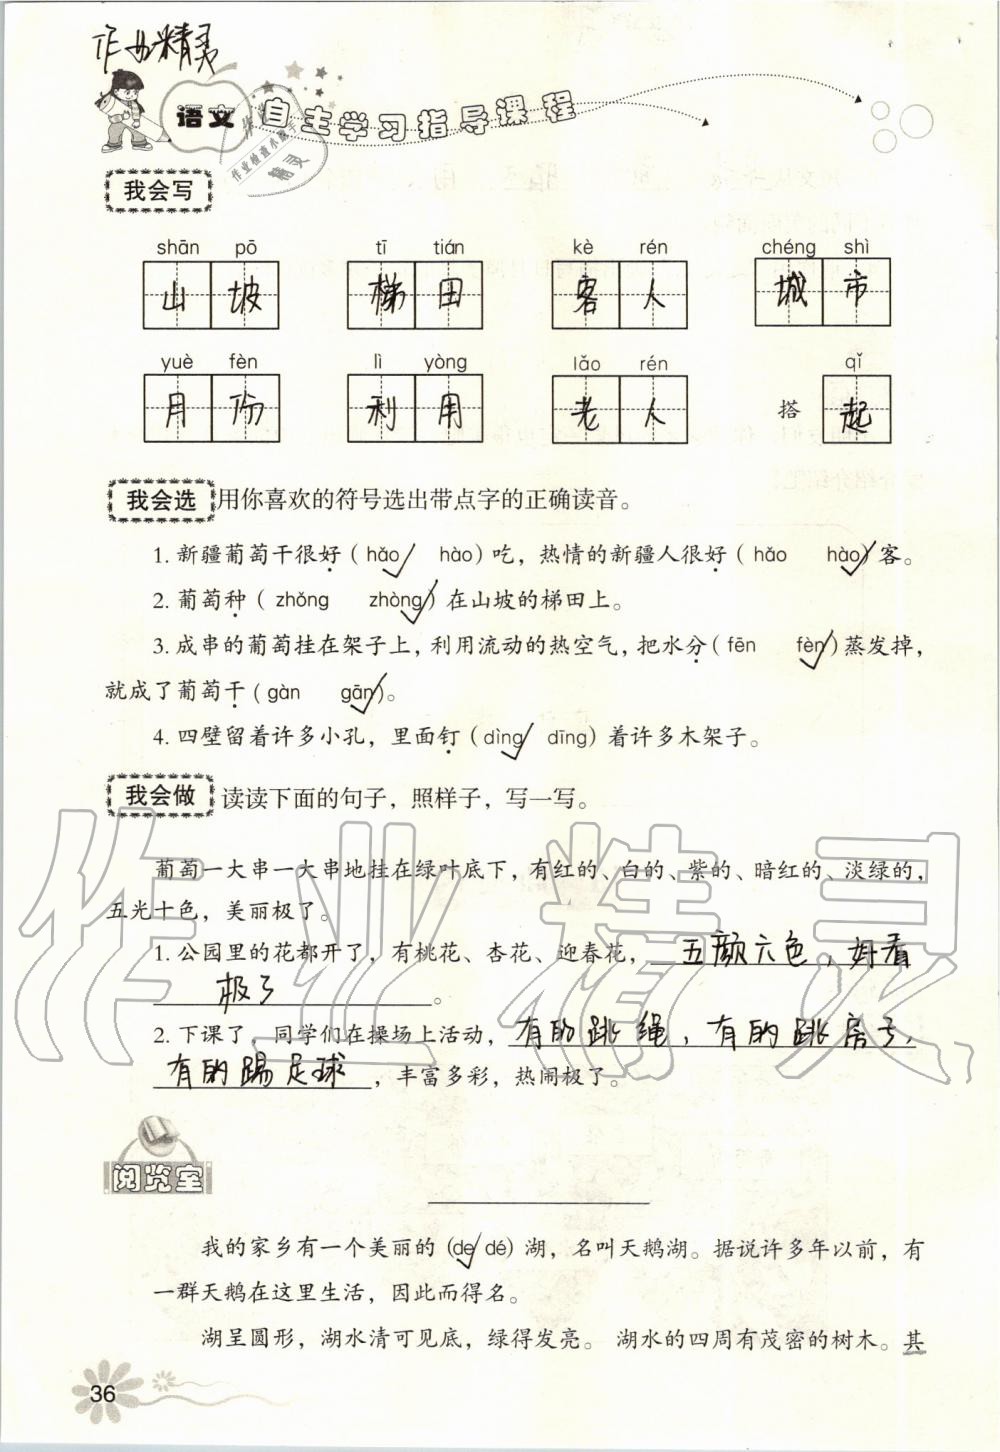 作业精灵
语文 自主学习指导课程
作业检查小助手
精灵
我会写
shān pō tī tián kè rén chéng shì
山坡 梯田 客人 城市
yuè fèn lì yòng lǎo rén qǐ
月份 利用 老人 搭 起
我会选 用你喜欢的符号选出带点字的正确读音。
1. 新疆葡萄干很好（hǎo✓ hào）吃，热情的新疆人很好（hǎo hào✓）客。
2. 葡萄种（zhǒng zhòng✓）在山坡的梯田上。
3. 成串的葡萄挂在架子上，利用流动的热空气，把水分（fēn fèn✓）蒸发掉，
就成了葡萄干（gàn gān✓）。
4. 四壁留着许多小孔，里面钉（dìng✓ dīng）着许多木架子。
我会做 读读下面的句子，照样子，写一写。
葡萄一大串一大串地挂在绿叶底下，有红的、白的、紫的、暗红的、淡绿的，
五光十色，美丽极了。
1. 公园里的花都开了，有桃花、杏花、迎春花，五颜六色，好看
极了。
2. 下课了，同学们在操场上活动，有的跳绳，有的跳房子，
有的踢足球，丰富多彩，热闹极了。
阅览室
我的家乡有一个美丽的（de✓ dé）湖，名叫天鹅湖。据说许多年以前，有
一群天鹅在这里生活，因此而得名。
湖呈圆形，湖水清可见底，绿得发亮。 湖水的四周有茂密的树木。其
36
作业精灵